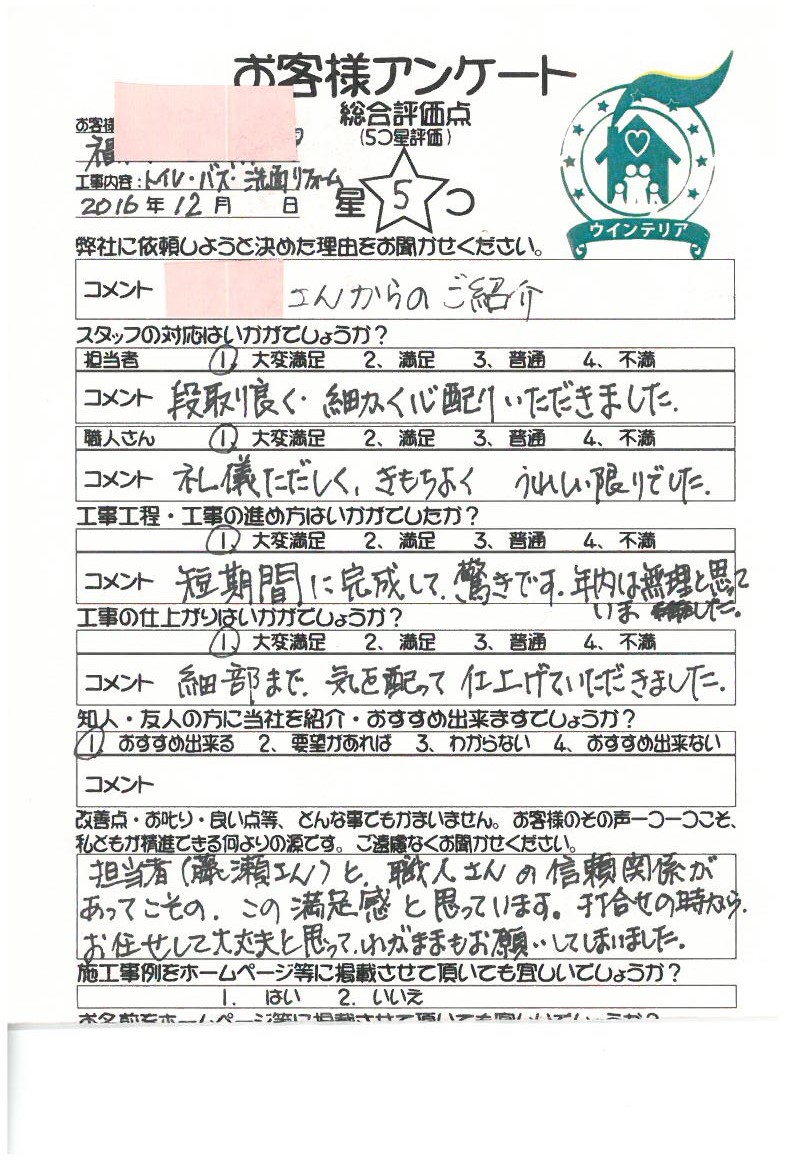 お客様アンケート
お客様
総合評価点
(5つ星評価)
工事内容：トイレ・バス・洗面リフォーム
2016年12月 日
星 5 つ
ウインテリア
弊社に依頼しようと決めた理由をお聞かせください。
コメント さんからのご紹介
スタッフの対応はいかがでしょうか？
担当者 1、大変満足 2、満足 3、普通 4、不満
コメント 段取り良く・細かく心配りいただきました。
職人さん 1、大変満足 2、満足 3、普通 4、不満
コメント 礼儀ただしく、きもちよく うれしい限りでした。
工事工程・工事の進め方はいかがでしたか？
1、大変満足 2、満足 3、普通 4、不満
コメント 短期間に完成して、驚きです。年内は無理と思って
いました。
工事の仕上がりはいかがでしょうか？
1、大変満足 2、満足 3、普通 4、不満
コメント 細部まで、気を配って仕上げていただきました。
知人・友人の方に当社を紹介・おすすめ出来ますでしょうか？
1、おすすめ出来る 2、要望があれば 3、わからない 4、おすすめ出来ない
コメント
改善点・お叱り・良い点等、どんな事でもかまいません。お客様のその声一つ一つこそ、
私どもが精進できる何よりの源です。ご遠慮なくお聞かせください。
担当者（藤瀬さん）と、職人さんの信頼関係が
あってこその、この満足感と思っています。打合せの時から、
お任せして大丈夫と思って、わがままもお願いしてしまいました。
施工事例をホームページ等に掲載させて頂いても宜しいでしょうか？
1. はい 2. いいえ
お名前をホームページ等に掲載させて頂いても宜しいでしょうか？